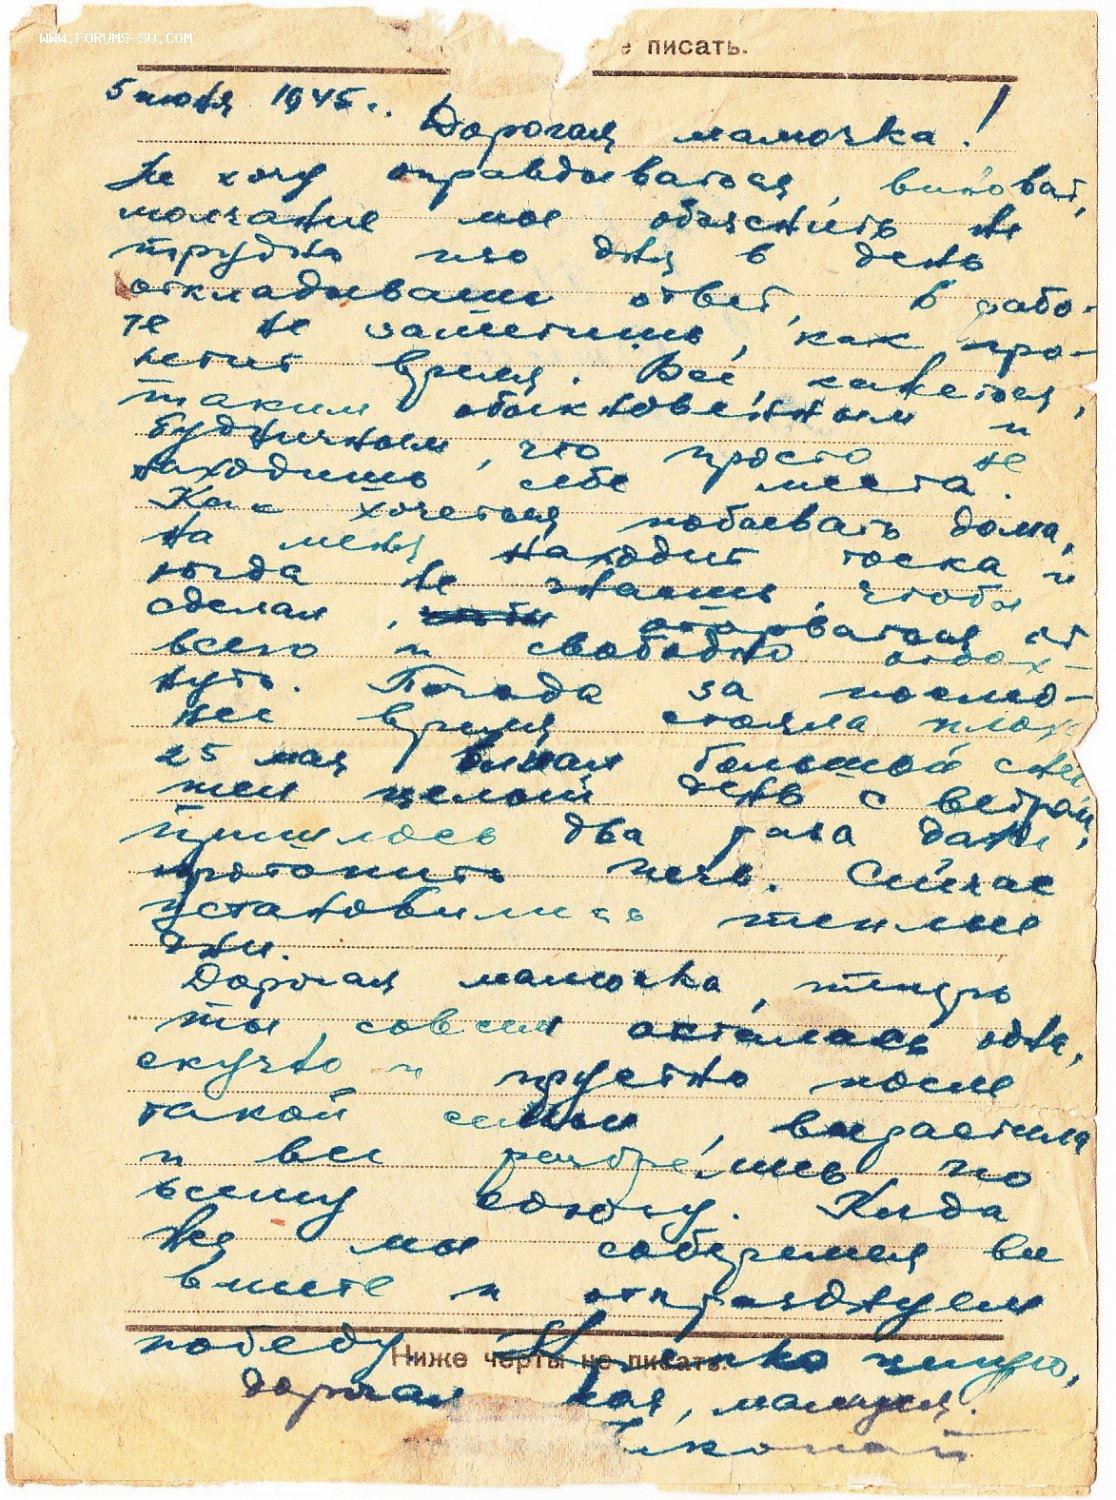 WWW.FORUMS-SU.COM
е писать.
5 июня 1945 г.
Дорогая мамочка!
Не хочу оправдываться, виноват,
молчание мое объяснить не
трудно изо дня в день
откладываешь ответ, в рабо-
те не заметишь, как про-
летит время. Всё, кажется,
таким обыкновенным и
будничным, что просто не
находишь себе места.
Как хочется побывать дома,
на меня находит тоска и
когда не знаешь, чтобы
сделал, оторваться от
всего и свободно отдох-
нуть. Погода за послед-
нее время стояла плох
25 мая большой сне
шел целый день с ветром,
пришлось два раза даже
протопить печь. Сейчас
установились теплые
дни.
Дорогая мамочка, теперь
ты совсем осталась одна,
скучно и грустно после
такой семьи, вырастила
и все разбрелись по
всему союзу. Когда
же мы соберемся все
вместе и отпразднуем
победу. Крепко целую,
Ниже черты не писать.
дорогая моя, мамуся.
Николай